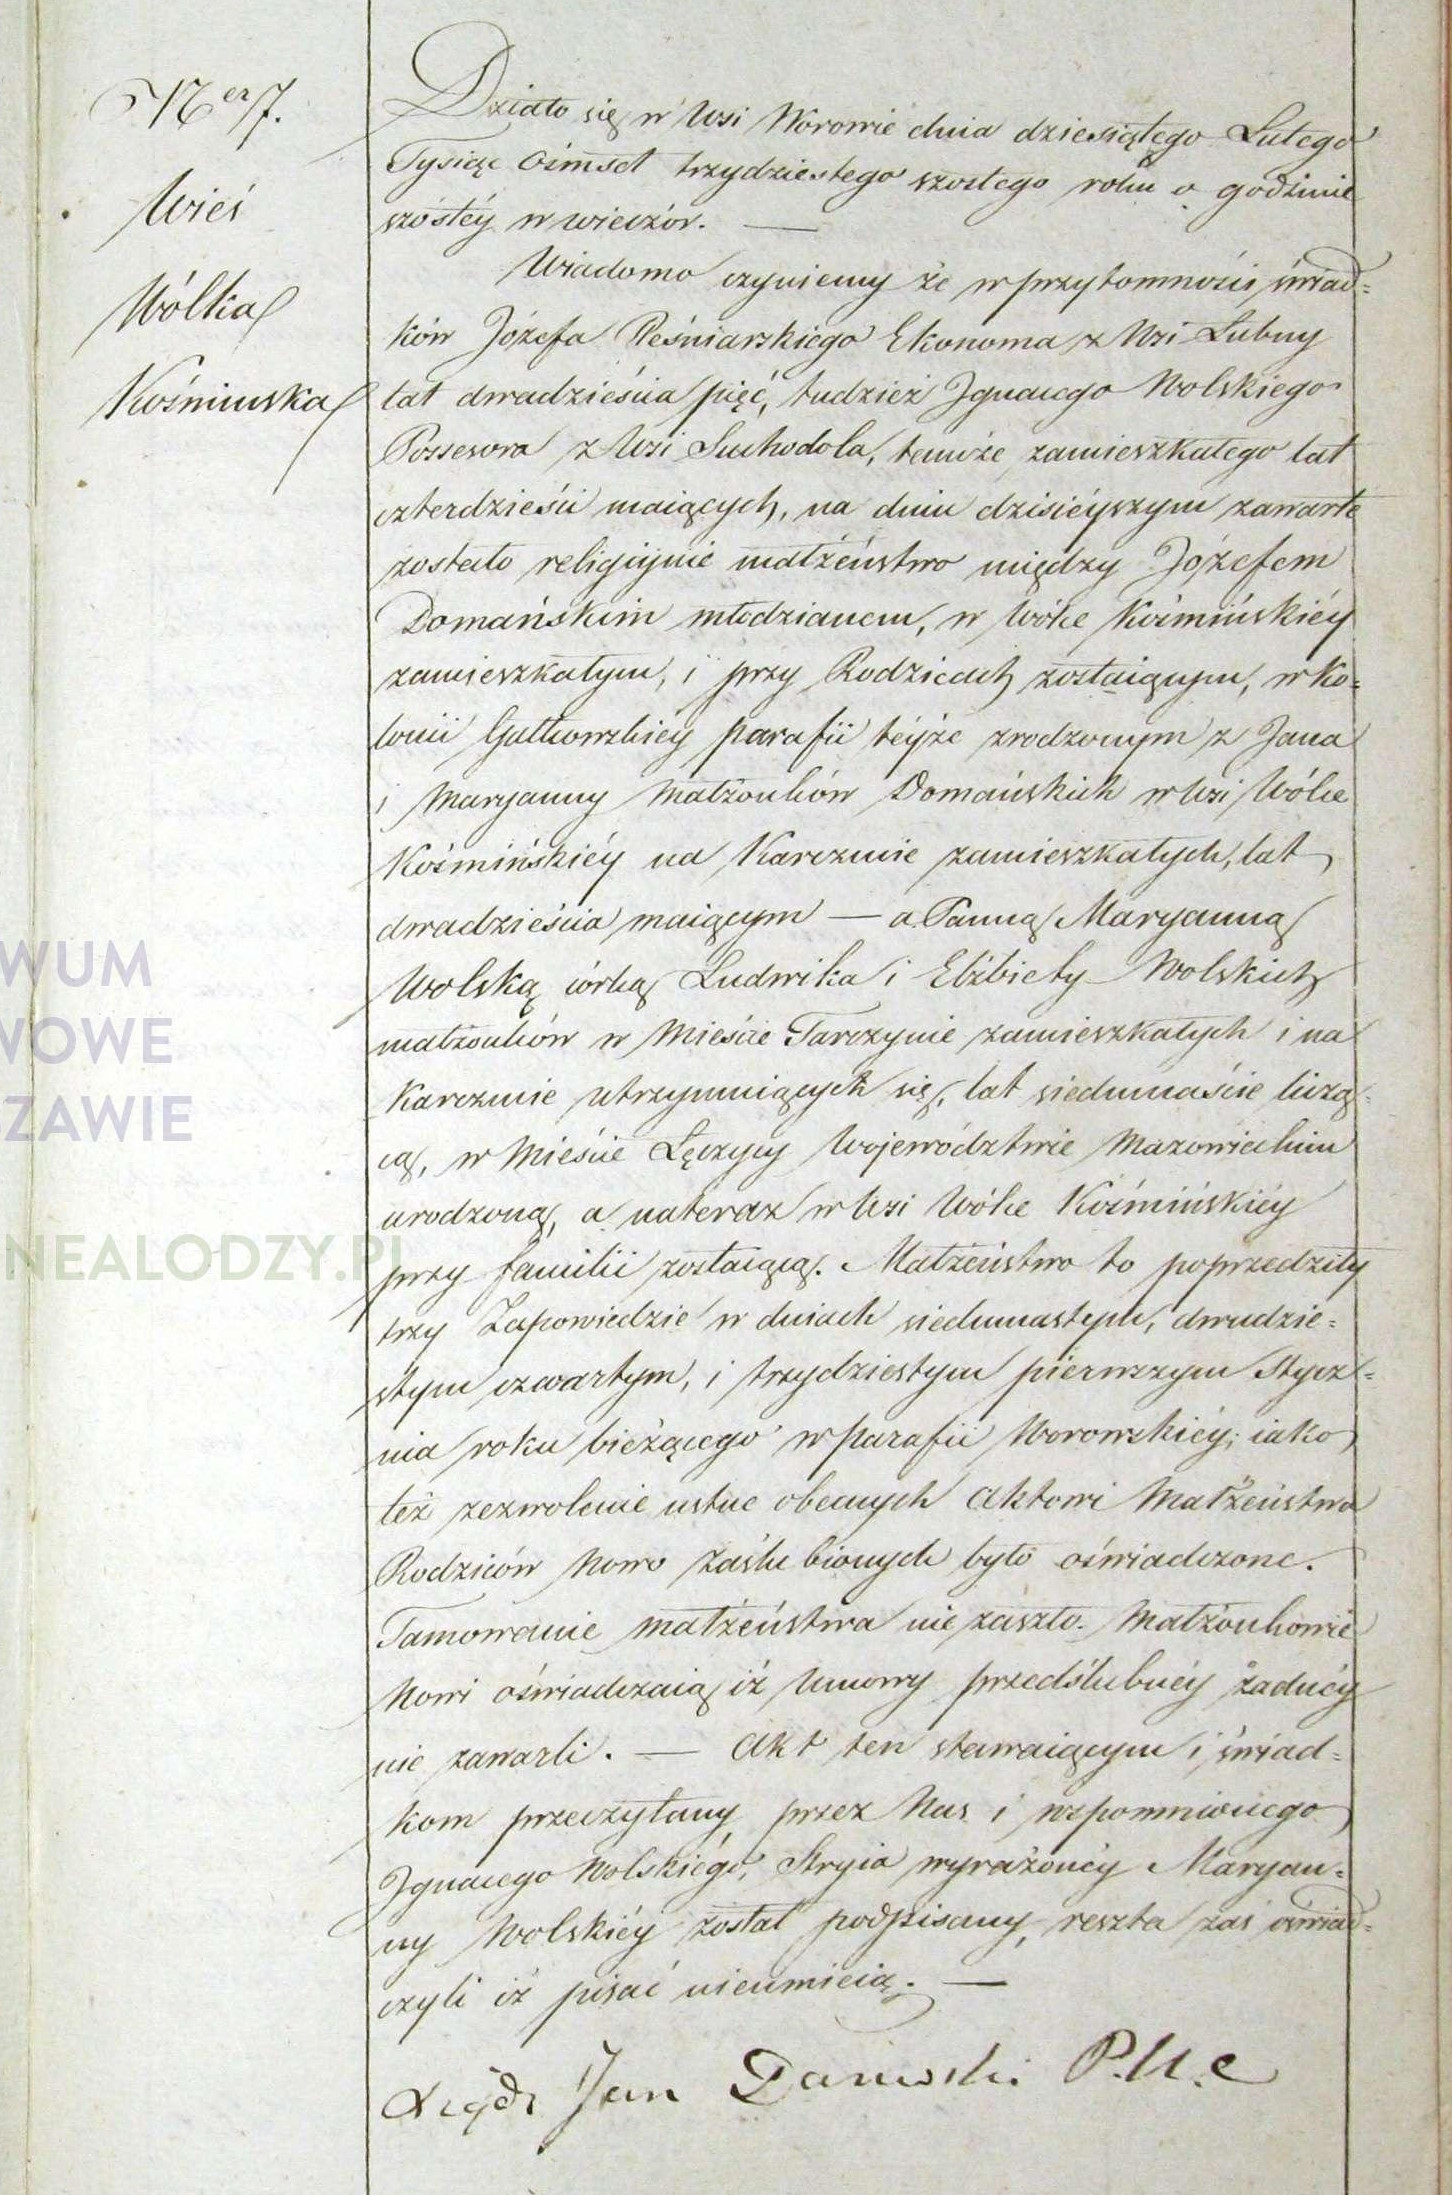 Ner 7.
Wieś
Wólka
Koźmińska
Działo się w Wsi Worowie dnia dziesiątego Lutego
Tysiąc Ośmset trzydziestego szostego roku o godzinie
szóstéy w wieczór. —
Wiadomo czyniemy że w przytomności świad=
ków Józefa Ekonoma z Wsi Lubny
lat dwadzieścia pięć, tudzież Ignacego Wolskiego
Possesora z Wsi Suchodola, tamże zamieszkałego lat
czterdzieści maiących, na dniu dzisiéyszym zawarte
zostało religijnie małżeństwo między Józefem
Domańskim młodzianem, w Wólce Koźmińskiéy
zamieszkałym, i przy Rodzicach zostaiącym, w Ko=
lonii Gutkowskiey parafii téyże zrodzonym z Jana
i Maryanny Małżonków Domańskich w Wsi Wólce
Koźmińskiéy na Karczmie zamieszkałych, lat
dwadzieścia maiącym — a Panną Maryanną
Wolską córką Ludwika i Elżbiety Wolskich
małżonków w Mieście Tarczynie zamieszkałych i na
Karczmie utrzymuiących się, lat siedmnaście liczą=
cą, w Mieście Łęczycy Województwie Mazowieckim
urodzoną, a nateraz w Wsi Wólce Koźmińskiéy
przy familii zostaiącą. Małżeństwo to poprzedziły
trzy Zapowiedzie w dniach siedmnastym, dwudzie=
stym czwartym, i trzydziestym pierwszym Stycz=
nia roku bieżącego w parafii Worowskiéy; iako
też zezwolenie ustne obecnych Aktowi Małżeństwa
Rodziców Nowo Zaślubionych było oświadczone.
Tamowanie małżeństwa nie zaszło. Małżonkowie
Nowi oświadczaią iż Umowy przedślubnéy żadnéy
nie zawarli. — Akt ten stawaiącym i świad=
kom przeczytany przez Nas i wspomnionego
Ignacego Wolskiégo, Stryia wyrażonéy Maryan=
ny Wolskiéy został podpisany, reszta zaś oświad=
czyli iż pisać nieumieią. —
Xiądz Jan P.U.C
WUM
WOWE
SZAWIE
NEALODZY.PL